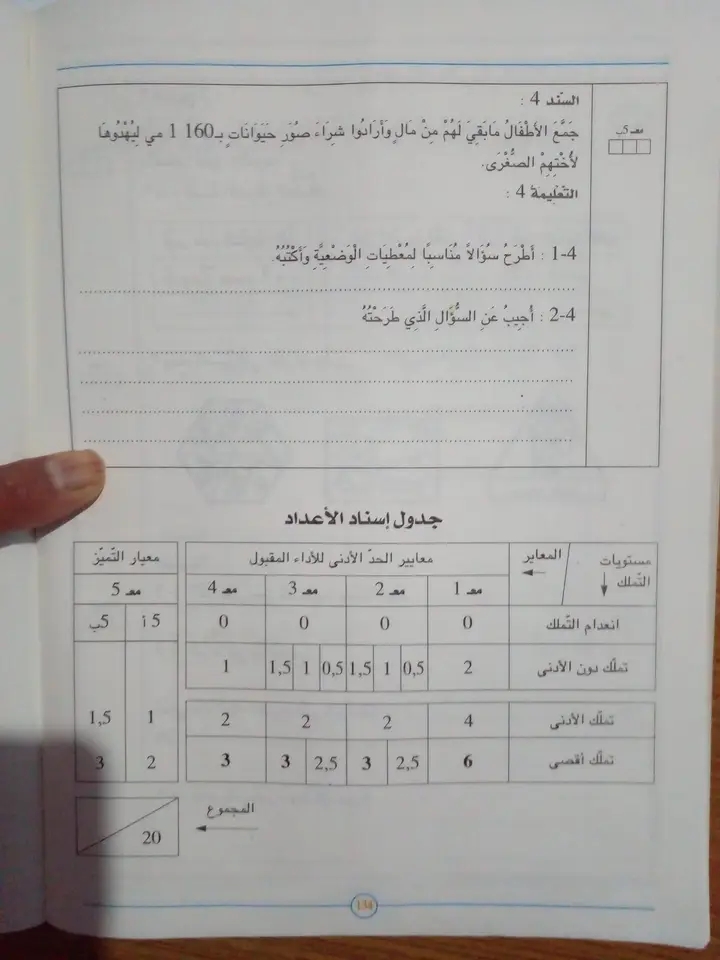 السّند 4 :
معـ 5ب
جَمَّعَ الأَطْفَالُ مَابَقِيَ لَهُمْ مِنْ مَالٍ وَأَرَادُوا شِرَاءَ صُوَرِ حَيَوَانَاتٍ بـ160 1 مي لِيُهْدُوهَا
لأُخْتِهِمْ الصُّغْرَى.
التّعْليمة 4 :
4-1 : أَطْرَحُ سُؤَالاً مُنَاسِبًا لِمُعْطِيَاتِ الْوَضْعِيَّةِ وَأَكْتُبُهُ.
4-2 : أُجِيبُ عَنِ السُّؤَالِ الَّذِي طَرَحْتُهُ
جدول إسناد الأعداد
مستويات التّملك المعايير معايير الحدّ الأدنى للأداء المقبول معيار التّميّز
معـ 1 معـ 2 معـ 3 معـ 4 معـ 5
انعدام التّملك 0 0 0 0 5 أ 5ب
تملّك دون الأدنى 2 0,5 1 1,5 0,5 1 1,5 1
تملّك الأدنى 4 2 2 2 1 1,5
تملّك أقصى 6 2,5 3 2,5 3 3 2 3
المجموع 20
134